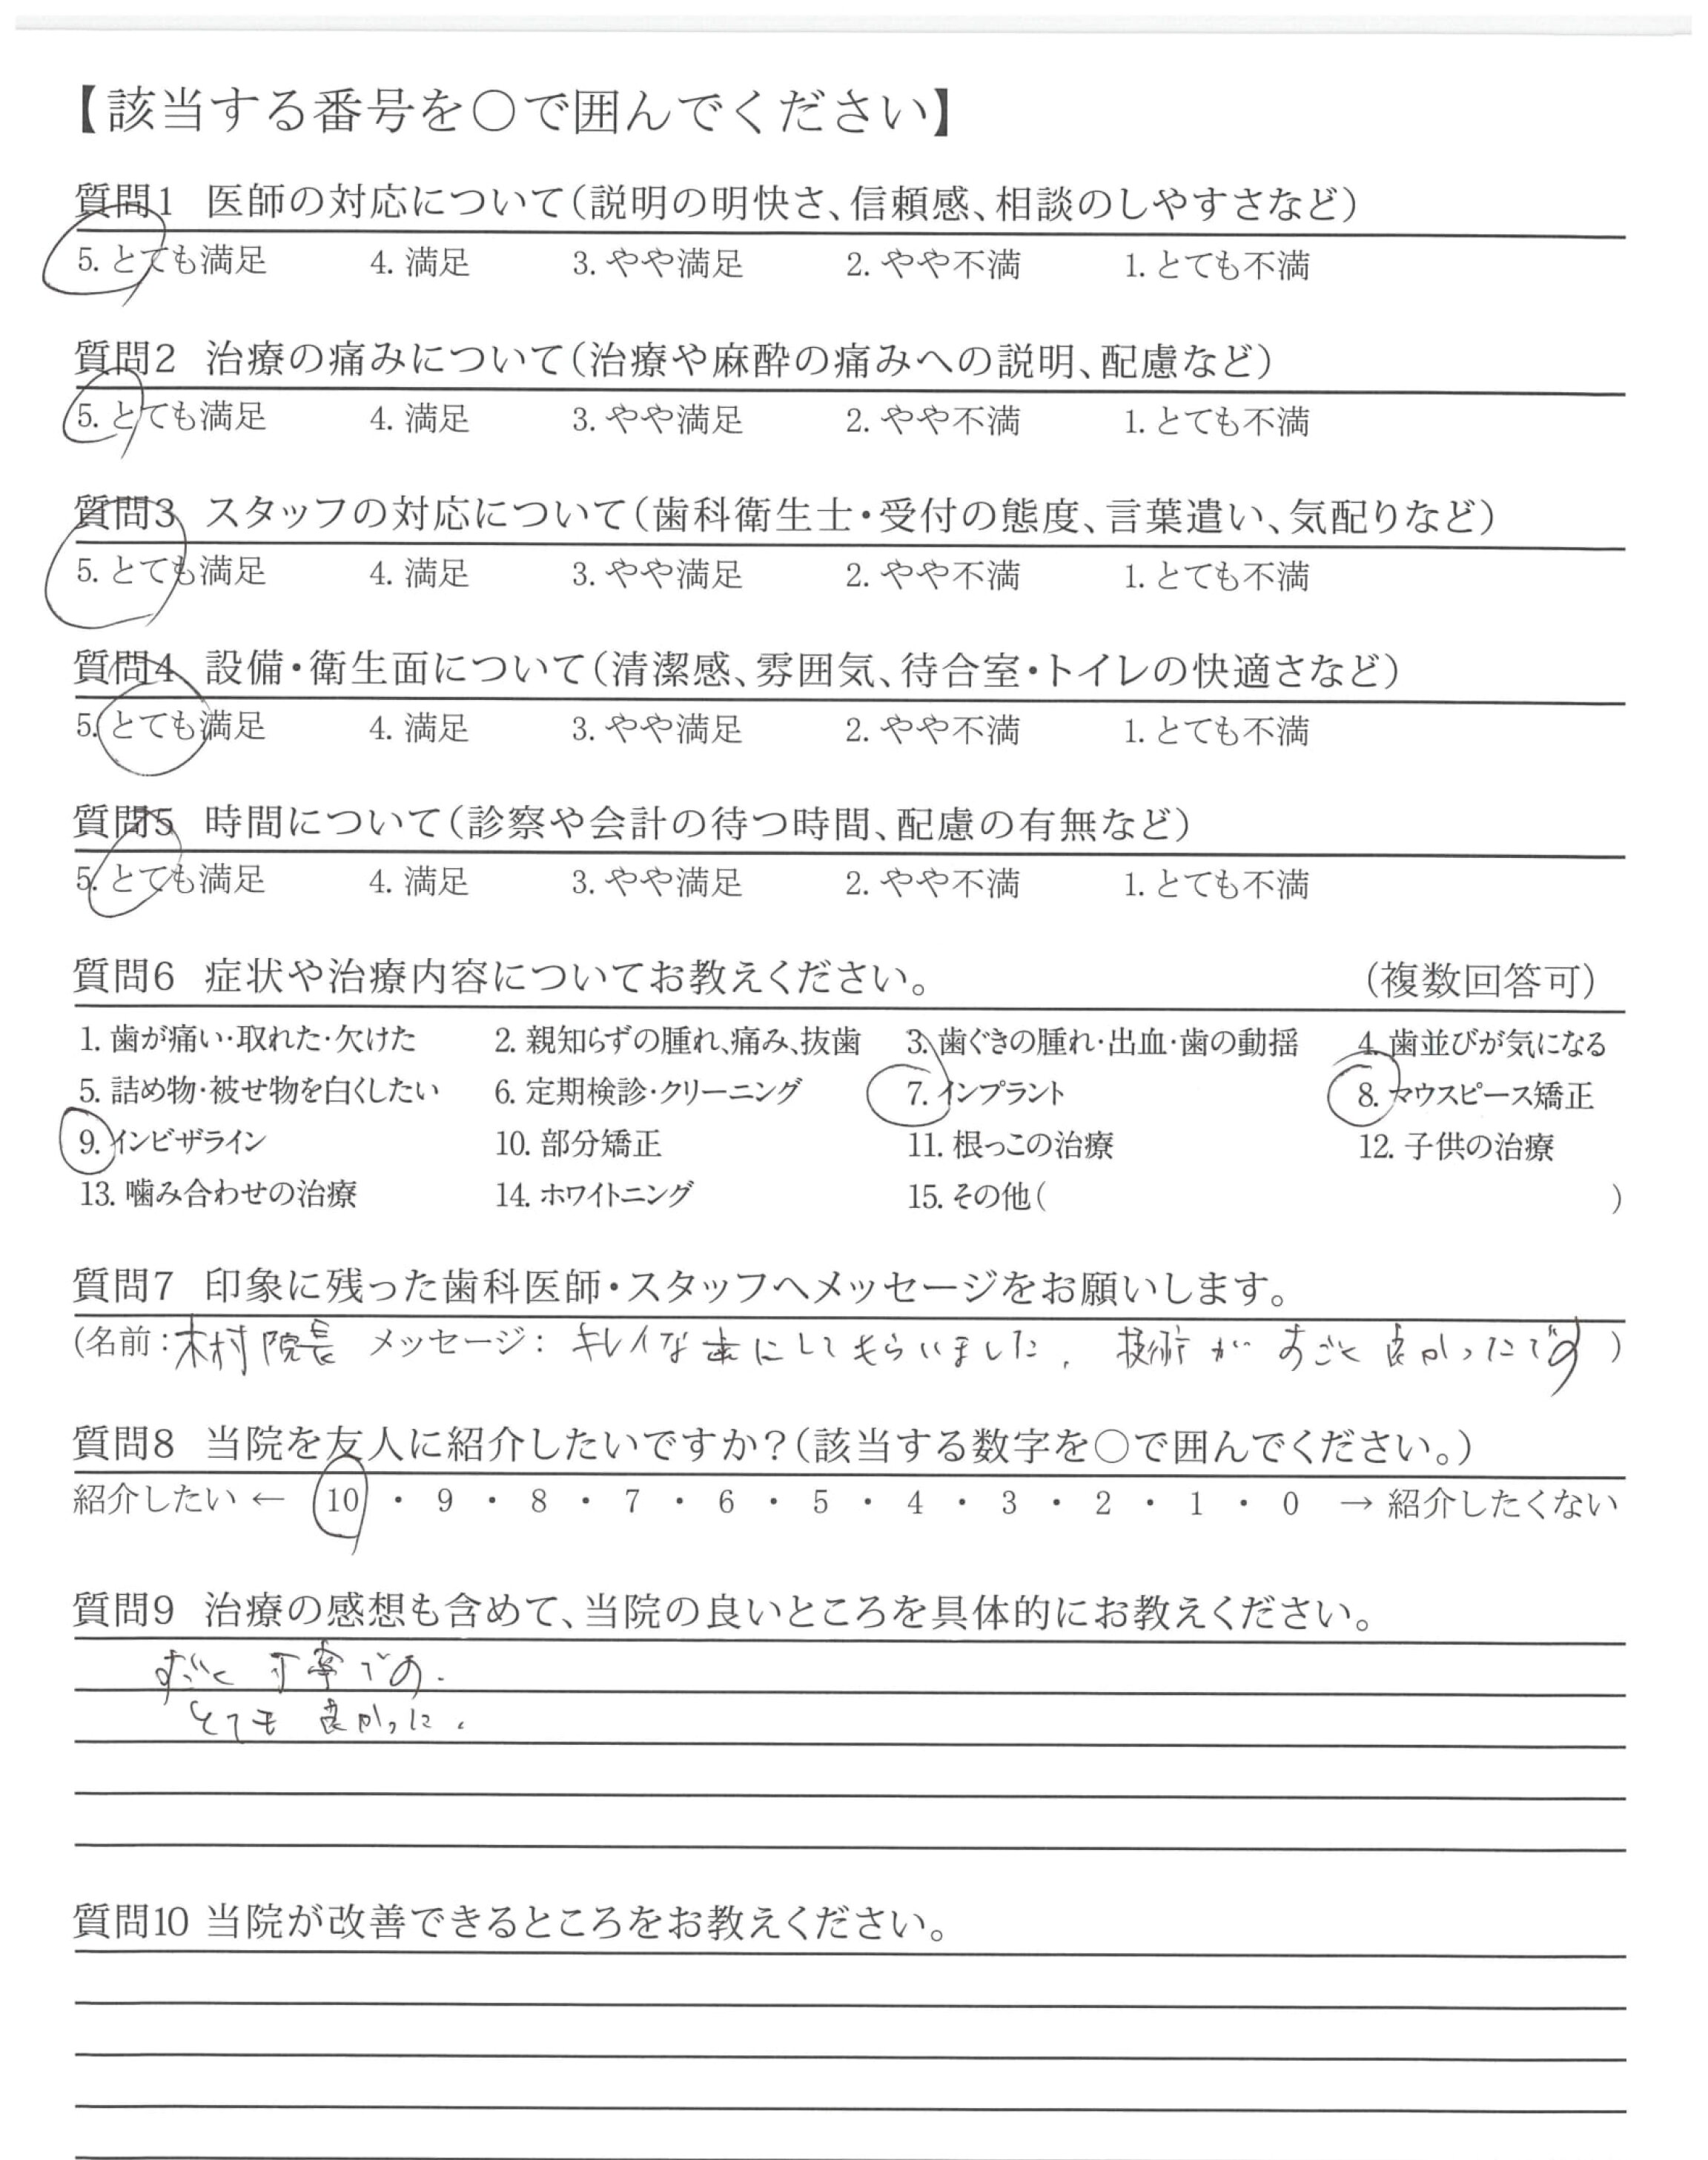 【該当する番号を○で囲んでください】
質問1 医師の対応について(説明の明快さ、信頼感、相談のしやすさなど)
5. とても満足 4. 満足 3. やや満足 2. やや不満 1. とても不満
質問2 治療の痛みについて(治療や麻酔の痛みへの説明、配慮など)
5. とても満足 4. 満足 3. やや満足 2. やや不満 1. とても不満
質問3 スタッフの対応について(歯科衛生士・受付の態度、言葉遣い、気配りなど)
5. とても満足 4. 満足 3. やや満足 2. やや不満 1. とても不満
質問4 設備・衛生面について(清潔感、雰囲気、待合室・トイレの快適さなど)
5. とても満足 4. 満足 3. やや満足 2. やや不満 1. とても不満
質問5 時間について(診察や会計の待つ時間、配慮の有無など)
5. とても満足 4. 満足 3. やや満足 2. やや不満 1. とても不満
質問6 症状や治療内容についてお教えください。 (複数回答可)
1. 歯が痛い・取れた・欠けた 2. 親知らずの腫れ、痛み、抜歯 3. 歯ぐきの腫れ・出血・歯の動揺 4. 歯並びが気になる
5. 詰め物・被せ物を白くしたい 6. 定期検診・クリーニング 7. インプラント 8. マウスピース矯正
9. インビザライン 10. 部分矯正 11. 根っこの治療 12. 子供の治療
13. 噛み合わせの治療 14. ホワイトニング 15. その他( )
質問7 印象に残った歯科医師・スタッフへメッセージをお願いします。
(名前:木村院長 メッセージ: キレイな歯にしてもらいました。 技術が すごく 良かったです )
質問8 当院を友人に紹介したいですか?(該当する数字を○で囲んでください。)
紹介したい ← 10 ・ 9 ・ 8 ・ 7 ・ 6 ・ 5 ・ 4 ・ 3 ・ 2 ・ 1 ・ 0 → 紹介したくない
質問9 治療の感想も含めて、当院の良いところを具体的にお教えください。
すごく 丁寧です.
とても 良かった。
質問10 当院が改善できるところをお教えください。